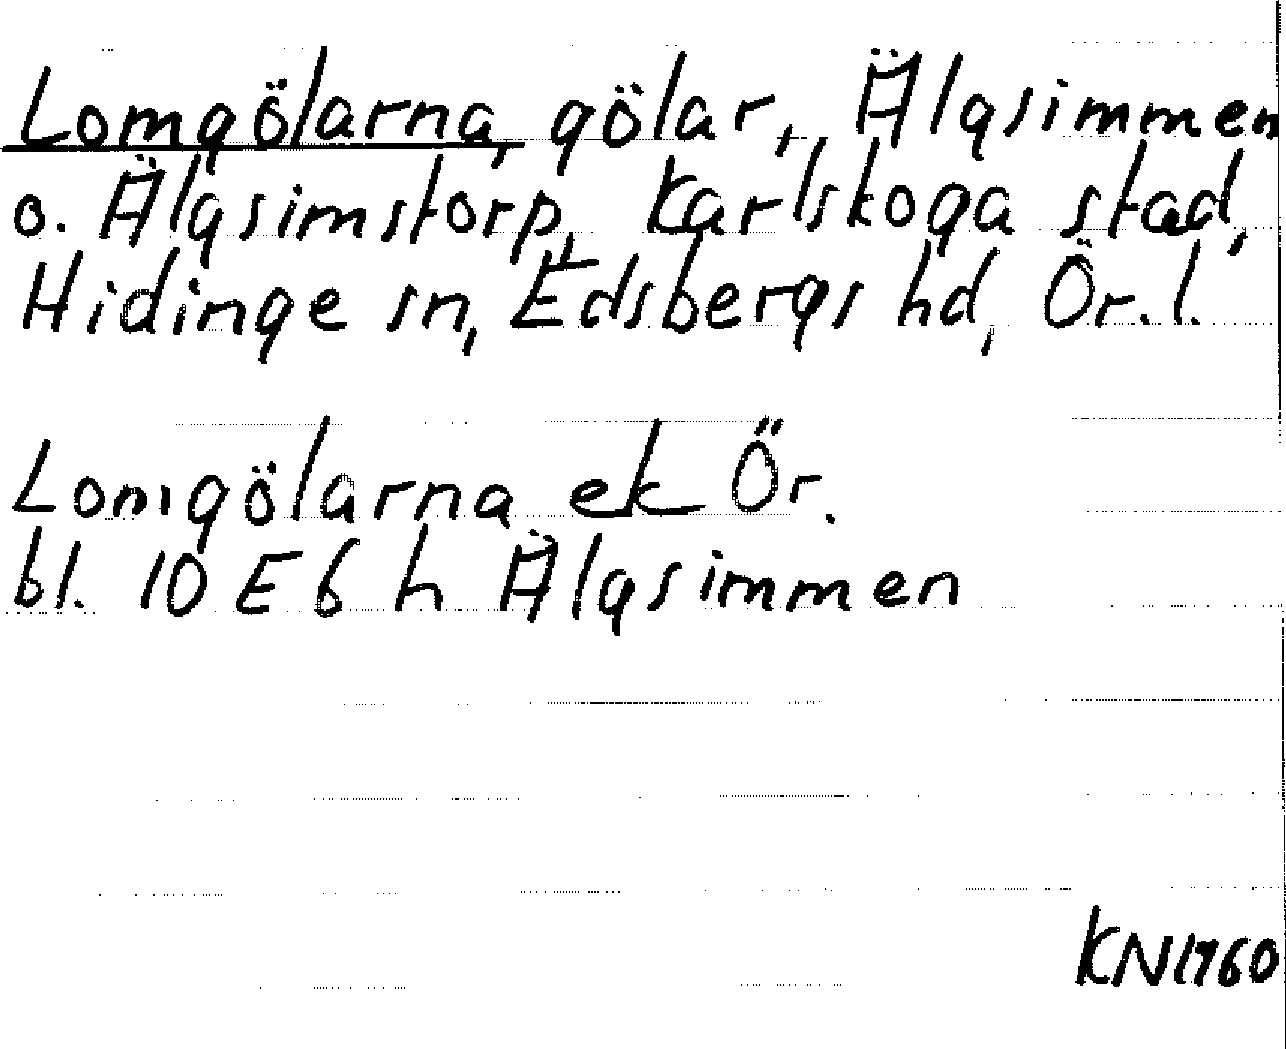 Lomgölarna, gölar, Älgsimmen
o. Älgsimstorp, Karlskoga stad,
Hidinge sn, Edsbergs hd, Ör. l.
Lomgölarna ek Ör.
bl. 10 E 6 h Älgsimmen
KN 1960